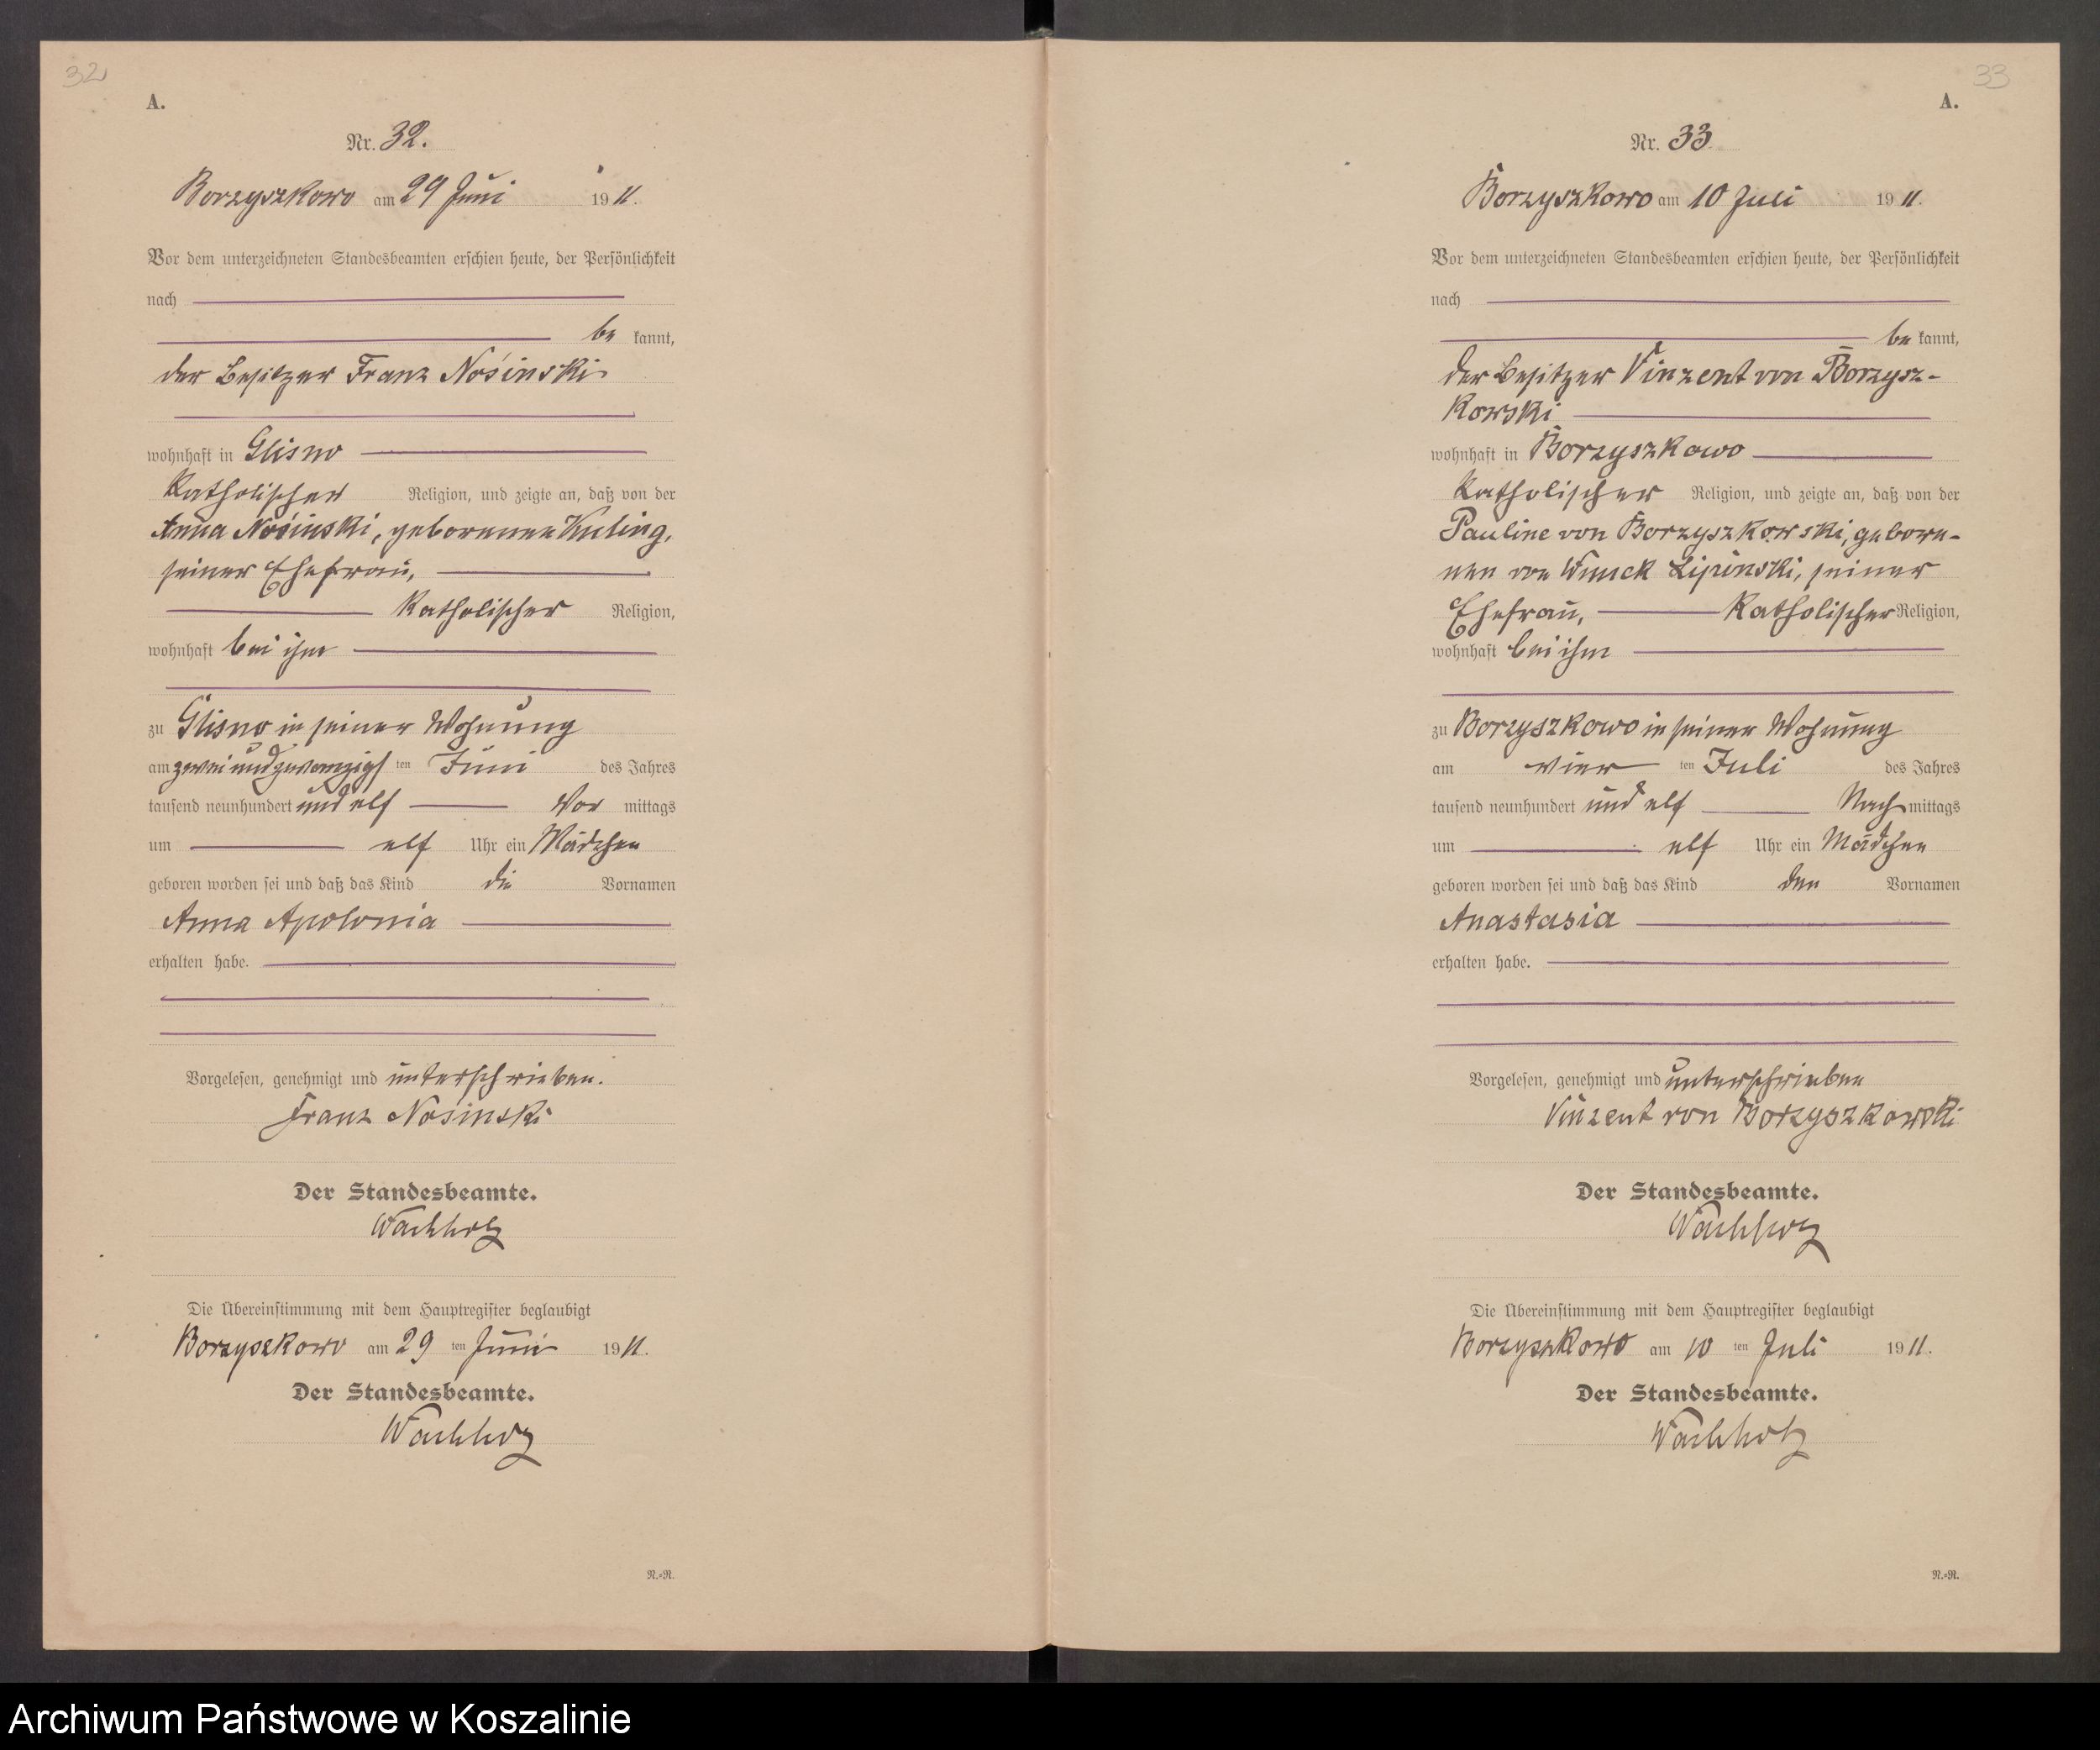 32
A.
Nr. 32.
Borzyszkowo am 29 Juni 1911.
Vor dem unterzeichneten Standesbeamten erschien heute, der Persönlichkeit
nach
be kannt,
der Besitzer Franz Nosinski
wohnhaft in Glisno
katholischer Religion, und zeigte an, daß von der
Anna Nosinski, geborenen
seiner Ehefrau,
katholischer Religion,
wohnhaft bei ihm
zu Glisno in seiner Wohnung
am zweiundzwanzigs ten Juni des Jahres
tausend neunhundert und elf Vor mittags
um elf Uhr ein Mädchen
geboren worden sei und daß das Kind die Vornamen
Anna Apolonia
erhalten habe.
Vorgelesen, genehmigt und unterschrieben.
Franz Nosinski
Der Standesbeamte.
Wachholz
Die Übereinstimmung mit dem Hauptregister beglaubigt
Borzyszkowo am 29 ten Juni 1911.
Der Standesbeamte.
Wachholz
N.=R.
33
A.
Nr. 33
Borzyszkowo am 10 Juli 1911.
Vor dem unterzeichneten Standesbeamten erschien heute, der Persönlichkeit
nach
be kannt,
der Besitzer Vinzent von Borzysz-
kowski
wohnhaft in Borzyszkowo
katholischer Religion, und zeigte an, daß von der
Pauline von Borzyszkowski, gebore-
nen von Lipinski, seiner
Ehefrau, katholischer Religion,
wohnhaft bei ihm
zu Borzyszkowo in seiner Wohnung
am vier ten Juli des Jahres
tausend neunhundert und elf Nach mittags
um elf Uhr ein Mädchen
geboren worden sei und daß das Kind den Vornamen
Anastasia
erhalten habe.
Vorgelesen, genehmigt und unterschrieben
Vinzent von Borzyszkowski
Der Standesbeamte.
Wachholz
Die Übereinstimmung mit dem Hauptregister beglaubigt
Borzyszkowo am 10 ten Juli 1911.
Der Standesbeamte.
Wachholz
N.=R.
Archiwum Państwowe w Koszalinie